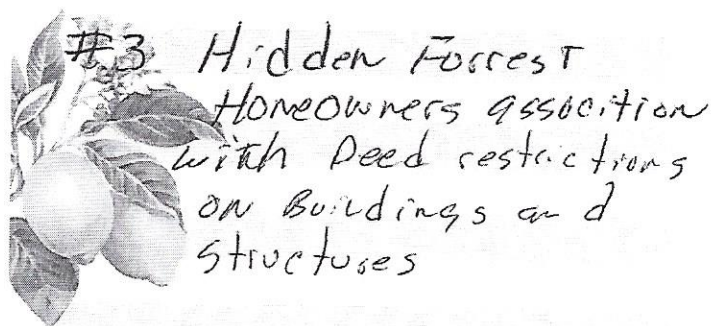 #3 Hidden Forrest
Homeowners assocition
with Deed restrictions
on Buildings and
structures